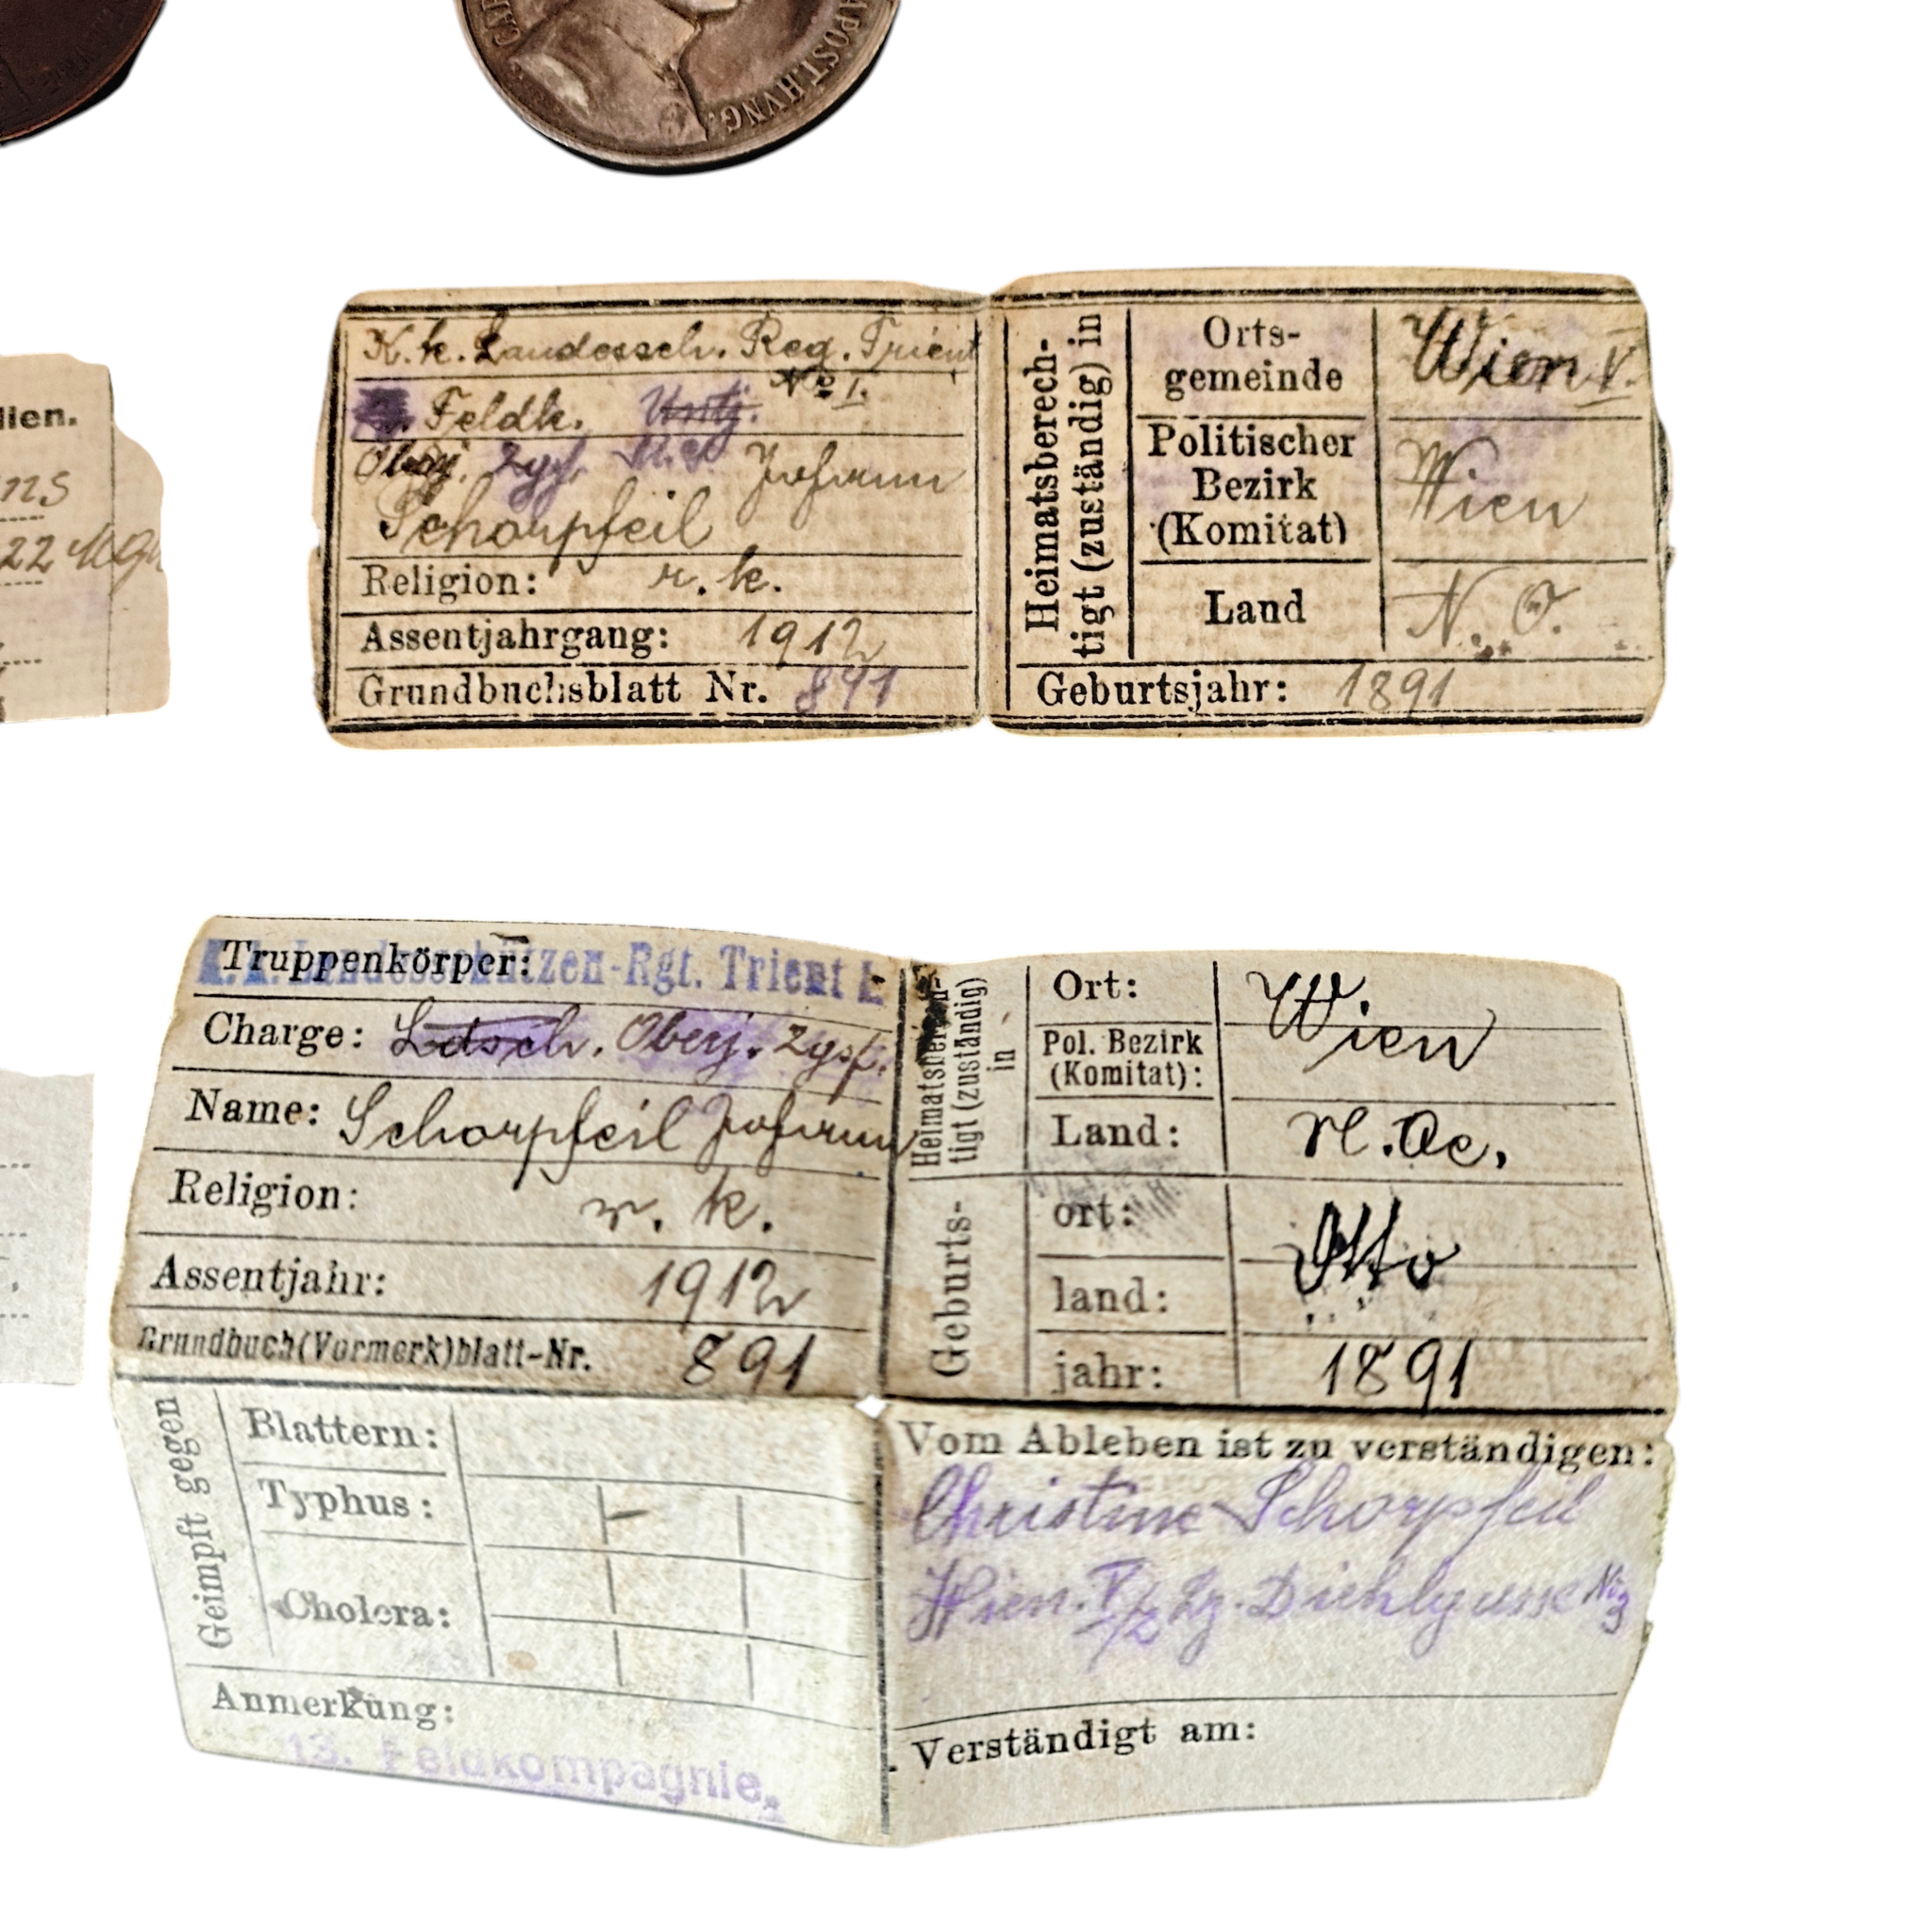 CAR
APOST.HVNG.
lien.
ns
22
K. k. Landessch. Reg. Trient
No I.
Feldk. Untj.
Oberj. Zgsf. Johann
Schorpfeil
Religion: r. k.
Assentjahrgang: 1912
Grundbuchsblatt Nr. 891
Heimatsberech-
tigt (zuständig) in
Orts-
gemeinde
Wien V.
Politischer
Bezirk
(Komitat)
Wien
Land
N. Ö.
Geburtsjahr: 1891
Truppenkörper:
k.k. Landesschützen-Rgt. Trient
Charge: Ldsch. Oberj. Zgsf.
Name: Schorpfeil Johann
Religion: r. k.
Assentjahr: 1912
Grundbuch(Vormerk)blatt-Nr. 891
Heimatsberech-
tigt (zuständig)
in
Ort:
Pol. Bezirk
(Komitat):
Wien
Land: N. Oe.
Geburts-
ort:
land:
Otto
jahr: 1891
Geimpft gegen
Blattern:
Typhus: –
Cholera:
Anmerkung:
13. Feldkompagnie.
Vom Ableben ist zu verständigen:
Christine Schorpfeil
Wien. V/2 Diehlgasse
Verständigt am: